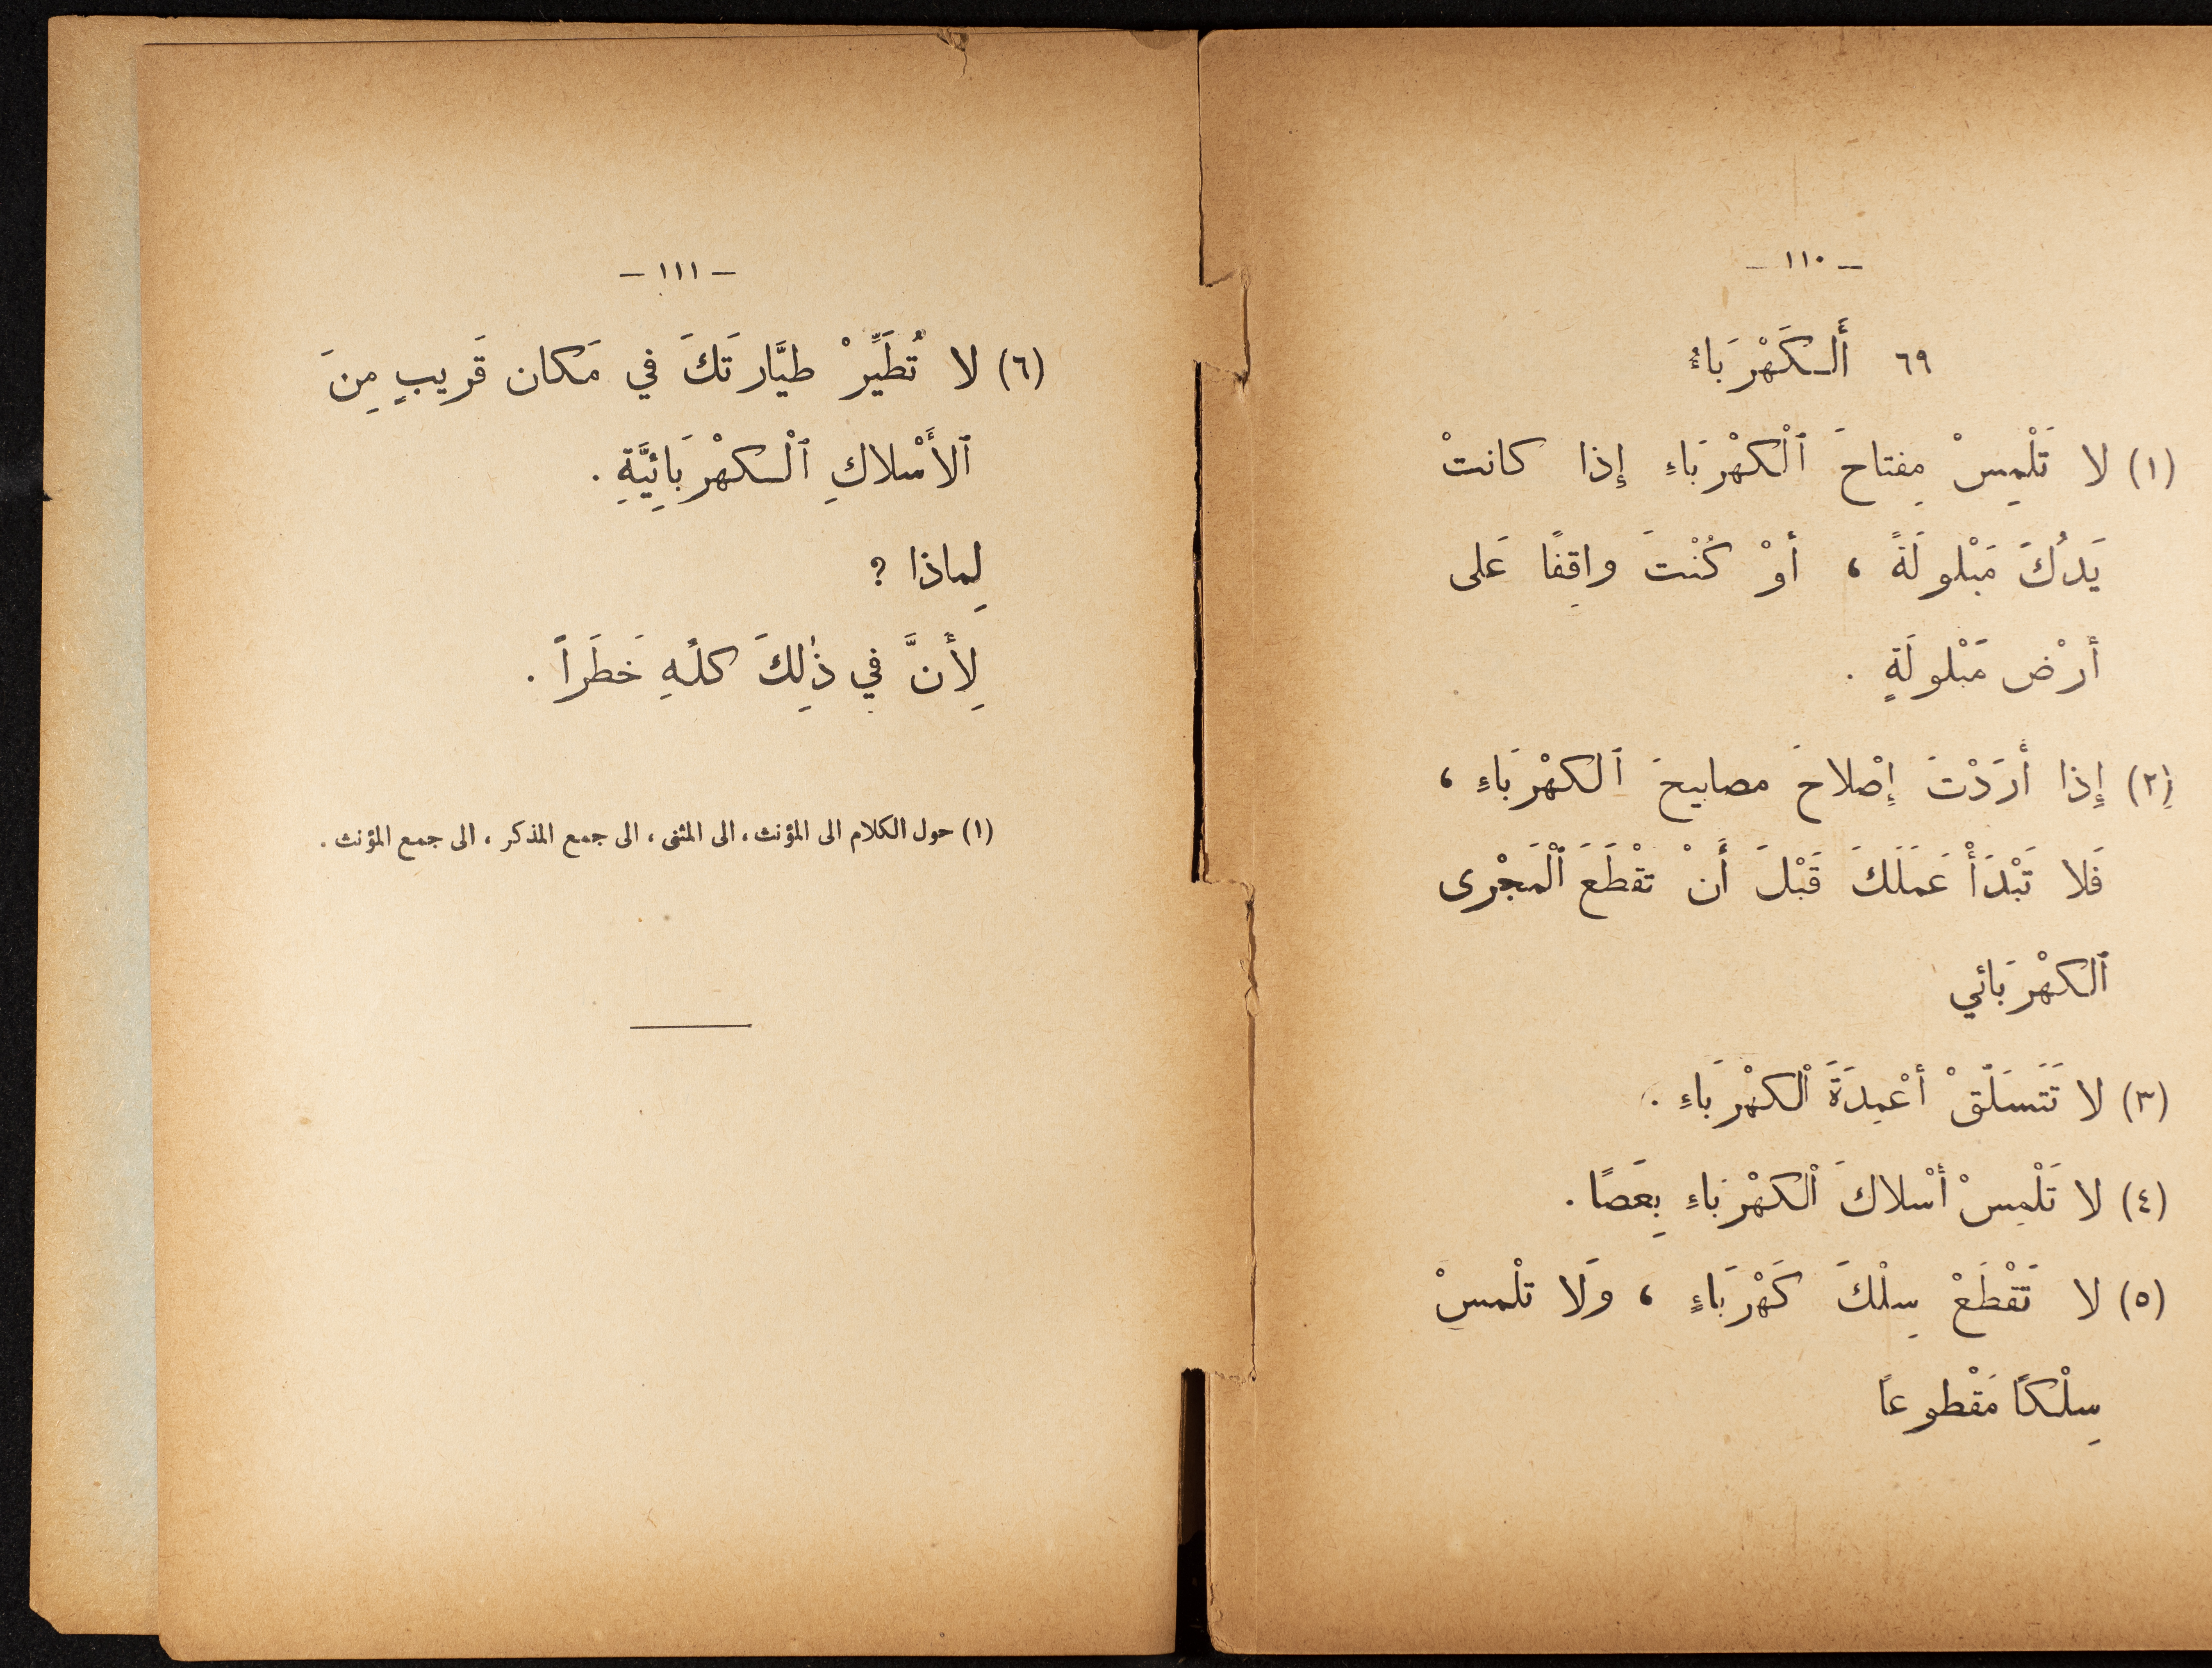 — ١١٠ —
٦٩ أَلـكَهْرَبَاءُ
(١) لا تَلْمِسْ مِفتاحَ ٱلْكهْرَبَاءِ إِذا كانتْ
يَدُكَ مَبْلولَةً ، أَوْ كُنْتَ واقِفًا عَلى
أَرْض مَبْلولَةٍ .
(٢) إِذا أَرَدْتَ إِصْلاحَ مصابيحَ ٱلكهْرَبَاءِ ،
فَلا تَبْدَأْ عَمَلَكَ قَبْلَ أَنْ تقْطَعَ ٱلْمَجْرى
ٱلكهْرَبائي
(٣) لا تَتَسَلّقْ أَعْمِدَةَ ٱلكهْرَبَاءِ .
(٤) لا تَلْمِسْ أَسْلاكَ ٱلكهْرَبَاءِ بِعَصًا .
(٥) لا تَقْطَعْ سِلْكَ كَهْرَبَاءٍ ، وَلا تلْمسْ
سِلْكًا مَقْطوعًا
— ١١١ —
(٦) لا تُطَيِّرْ طيَّارتَكَ في مَكان قَريبٍ مِنَ
ٱلأَسْلاكِ ٱلْـكهْرَبَائِيَّةِ .
لِماذا ؟
لِأَنَّ في ذٰلِكَ كلهِ خَطَراً .
(١) حول الكلام الى المؤنث ، الى المثنى ، الى جمع المذكر ، الى جمع المؤنث .